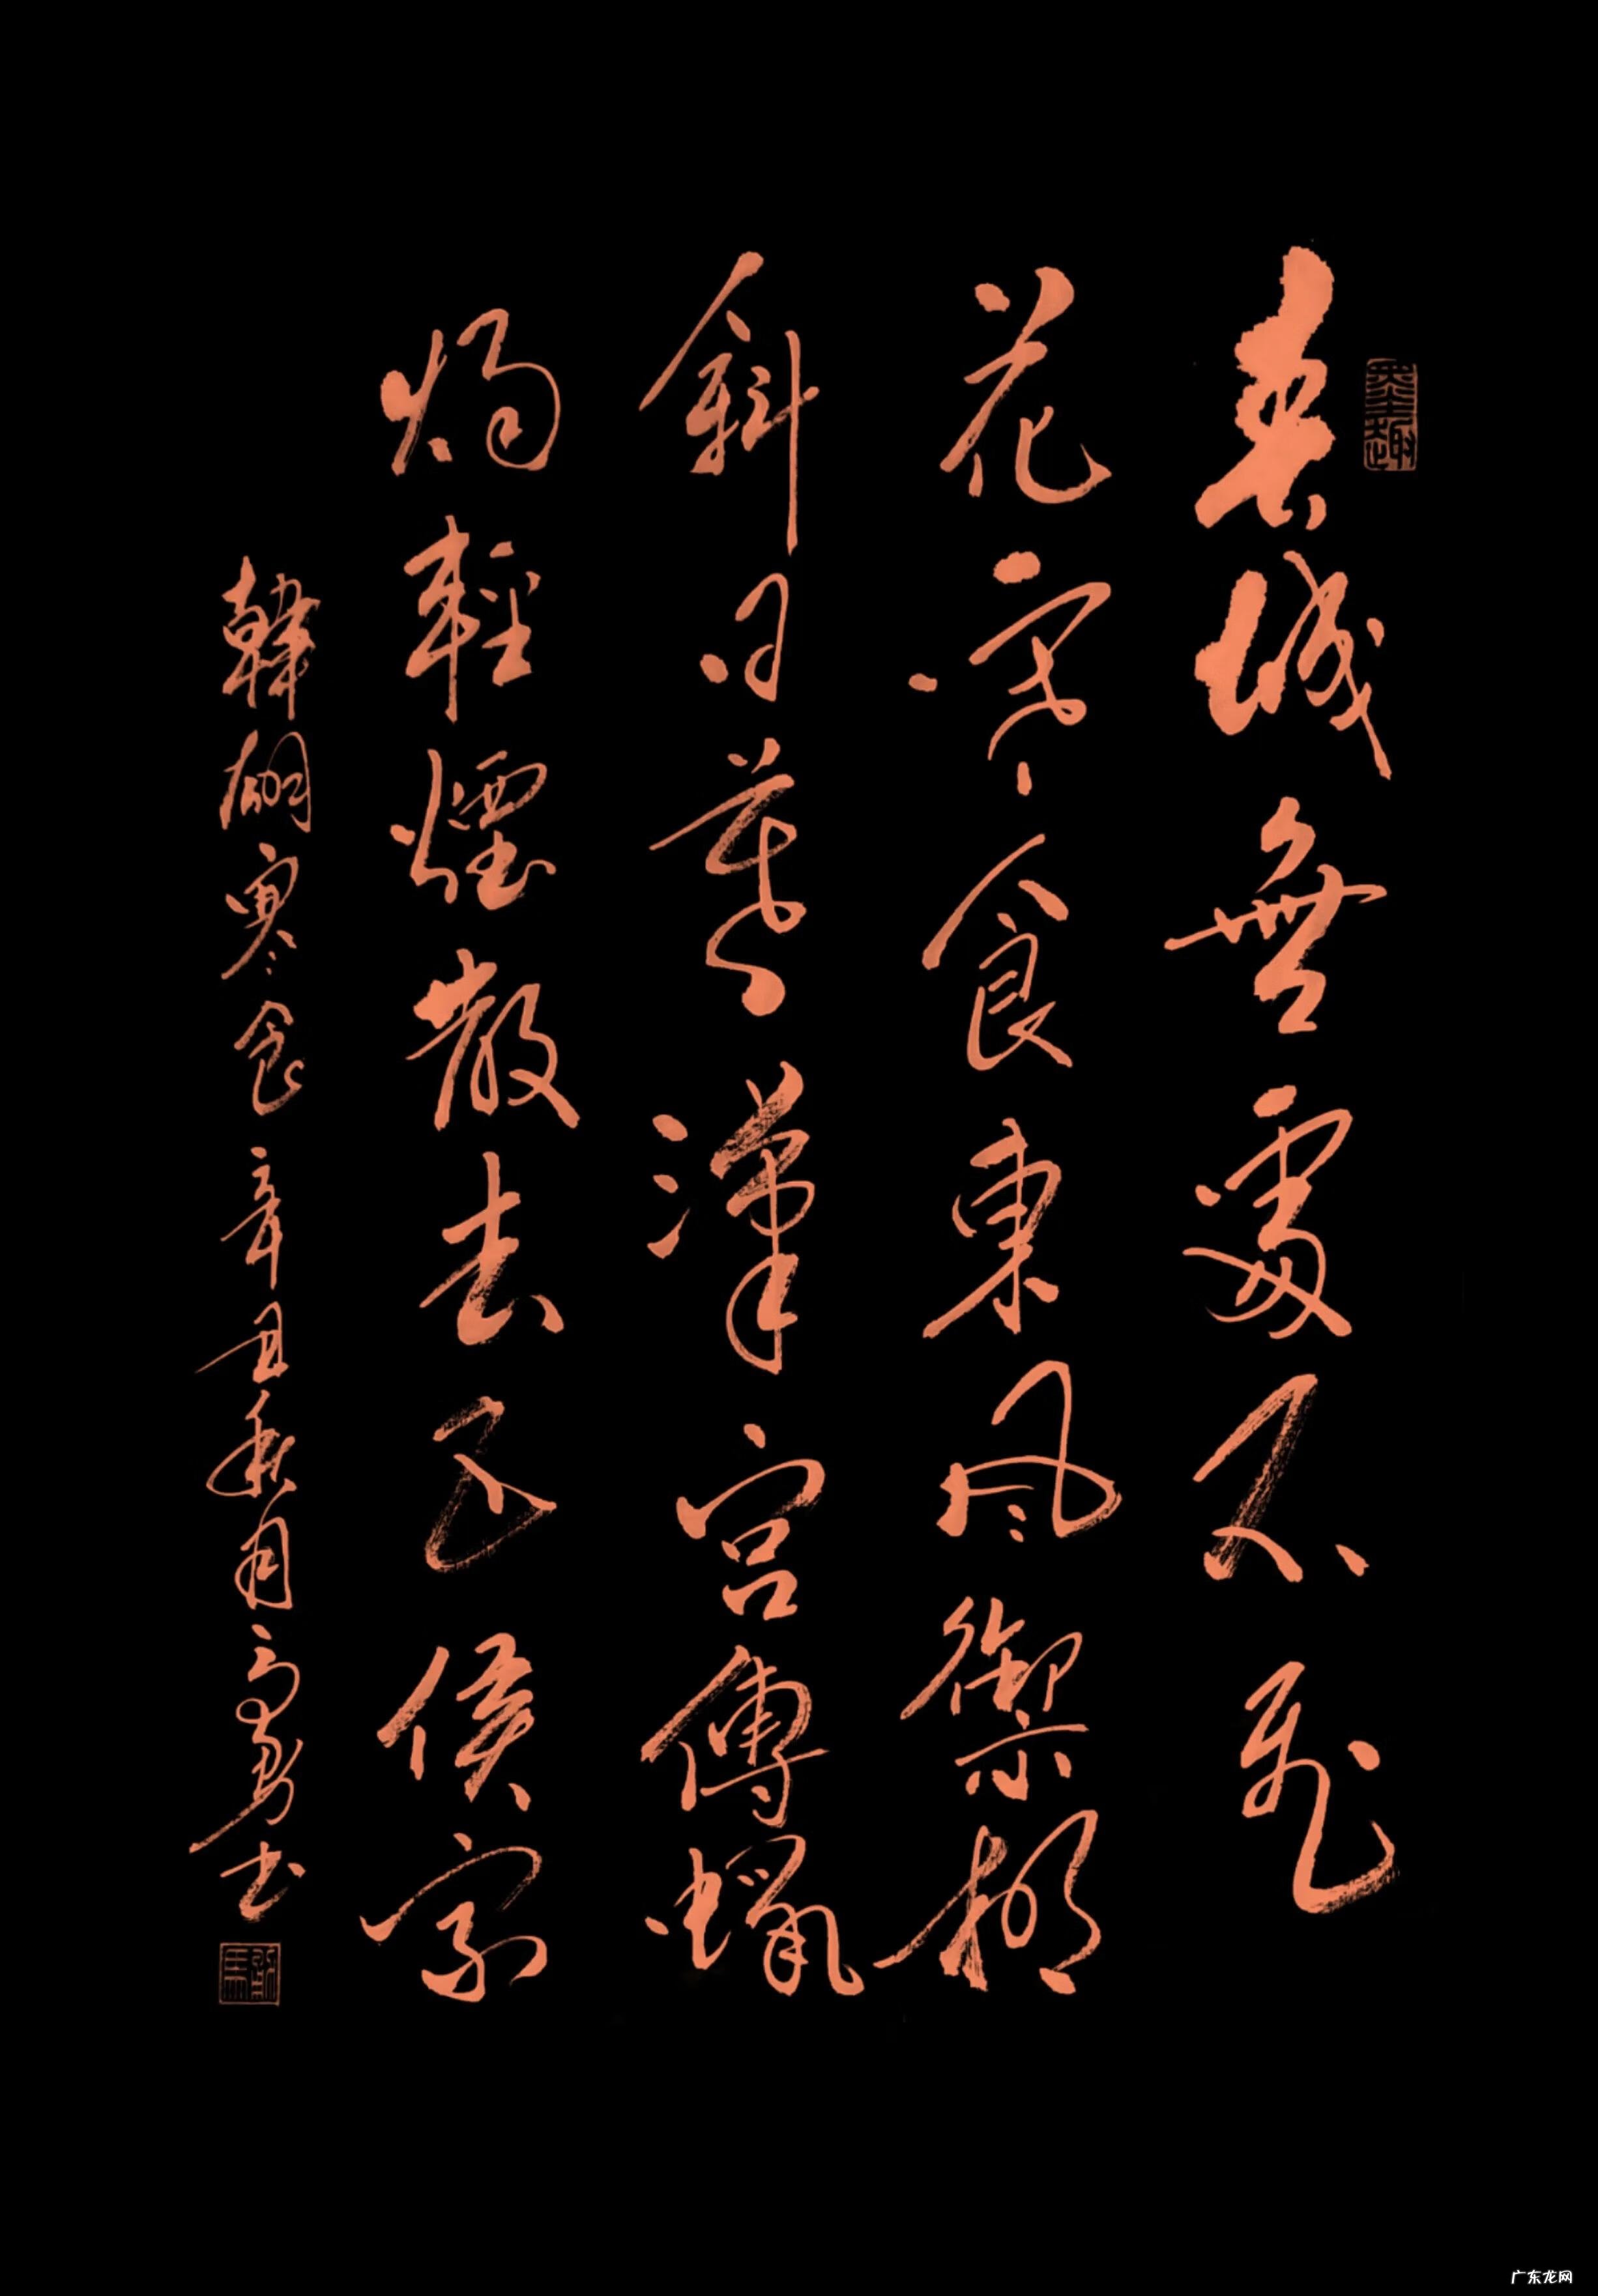 墨趣
春城無處不飛
花寒食東風御柳
斜日暮漢宮傳蠟
燭輕煙散去五侯家
韓翃寒食辛丑秋月勇书
广东龙网